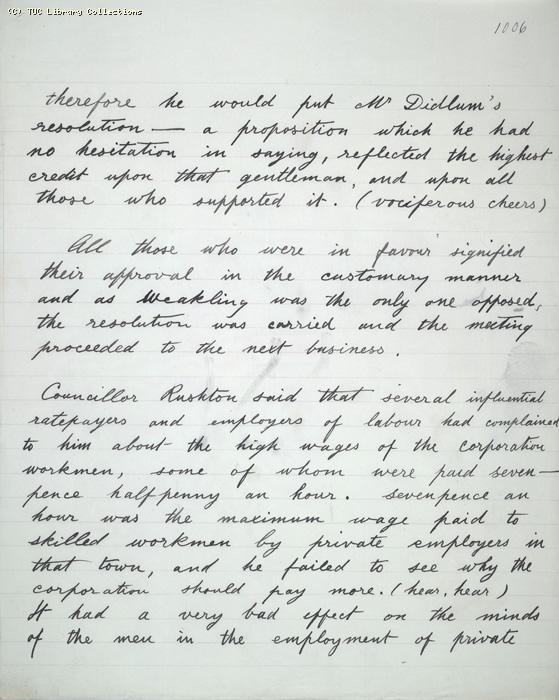 (C) TUC Library Collections
1006
therefore he would put Mr Didlum's
resolution — a proposition which he had
no hesitation in saying, reflected the highest
credit upon that gentleman, and upon all
those who supported it. (vociferous cheers)
All those who were in favour signified
their approval in the customary manner
and as Weakling was the only one opposed,
the resolution was carried and the meeting
proceeded to the next business.
Councillor Rushton said that several influential
ratepayers and employers of labour had complained
to him about the high wages of the corporation
workmen, some of whom were paid seven—
pence halfpenny an hour. Sevenpence an
hour was the maximum wage paid to
skilled workmen by private employers in
that town, and he failed to see why the
corporation should pay more. (hear, hear)
It had a very bad effect on the minds
of the men in the employment of private